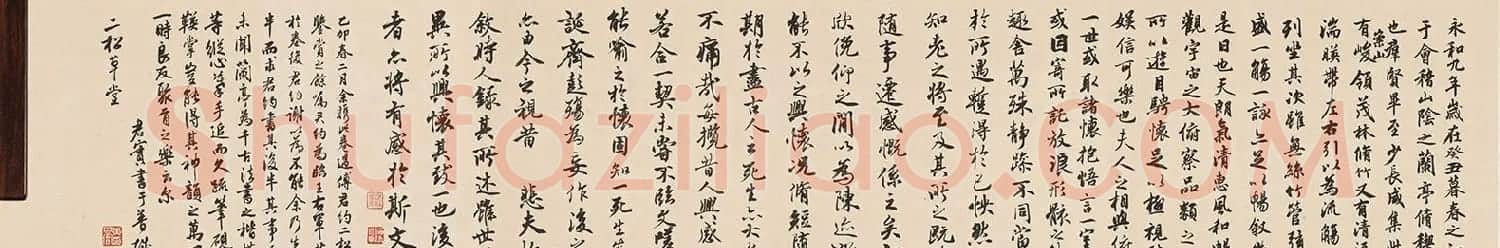 永和九年歲在癸丑暮春之
于會稽山陰之蘭亭脩稧
也羣賢畢至少長咸集此
崇山
有峻領茂林脩竹又有清
湍暎帶左右引以為流觴
列坐其次雖無絲竹管弦
盛一觴一詠亦足以暢敘
是日也天朗氣清惠風和暢
觀宇宙之大俯察品類之
所以遊目騁懷足以極視聽
娛信可樂也夫人之相與俯
一世或取諸懷抱悟言一室
或因寄所託放浪形骸之
趣舍萬殊靜躁不同當
於所遇蹔得於己怏然
知老之將至及其所之既
隨事遷感慨係之矣
欣俛仰之間以為陳迹
能不以之興懷況脩短隨
期於盡古人云死生亦大
不痛哉每攬昔人興感
若合一契未嘗不臨文嗟
能喻之於懷固知一死生
誕齊彭殤為妄作後之
亦由今之視昔 悲夫故
敘時人錄其所述雖世
異所以興懷其致一也後
者亦將有感於斯文
己卯春二月余攜此卷過傅君約二松
鑒賞之餘為君約為臨王右軍
於卷後君約謝為不能余乃
半而求君約書其後半其事
未聞蘭亭為千古法書之楷
等縱心慕手追而久疏筆硯
鞅掌豈能得其神韻之萬
一時良友聚首之樂云爾
老實書于
二松草堂
shufaziliao.COM